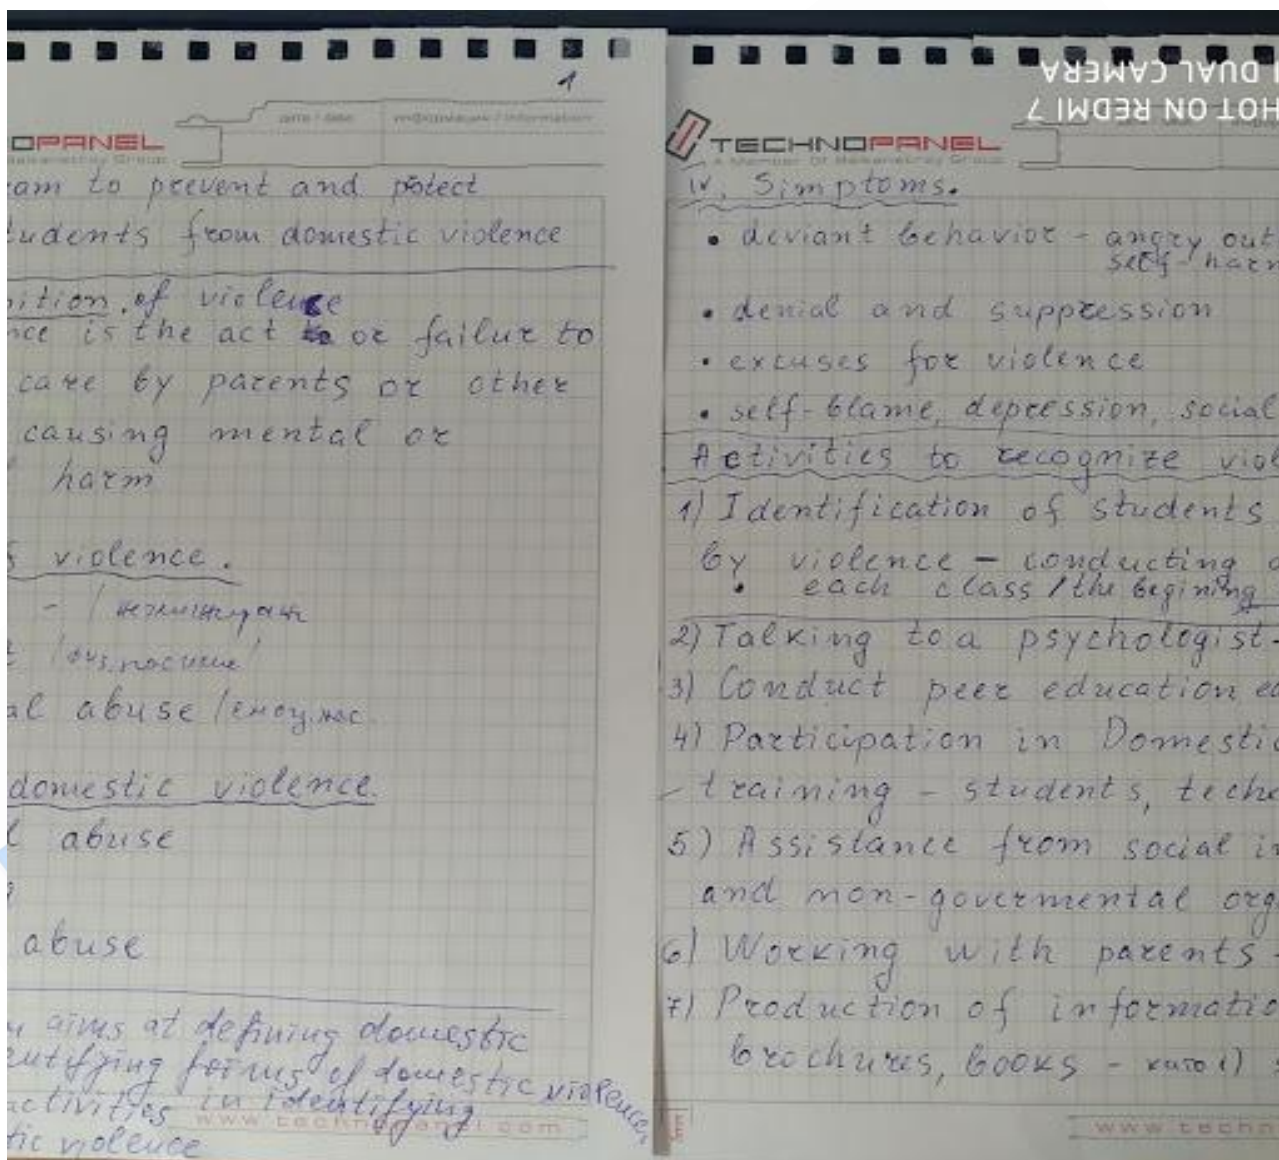 1
OPANEL
am to prevent and potect
tudents from domestic violence
nition of violence
nce is the act or failur to
care by parents or other
causing mental or
harm
violence.
al abuse
domestic violence.
l abuse
abuse
aims at defining domestic
entifying forms of domestic violence,
activities in identifying
tic violence
www.technopanel.com
DUAL CAMERA
HOT ON REDMI 7
TECHNOPANEL
A Member Of Group
IV. Simptoms.
• deviant behavior - angry out
self-harm
• denial and suppression
• excuses for violence
• self-blame, depression, social
Activities to recognize viol
1) Identification of students
by violence - conducting
• each class / the begining
2) Talking to a psychologist -
3) Conduct peer education
4) Participation in Domestic
- training - students, teche
5) Assistance from social in
and non-govermental org
6) Working with parents -
7) Production of informatio
brochures, books - като 1)
www.techn